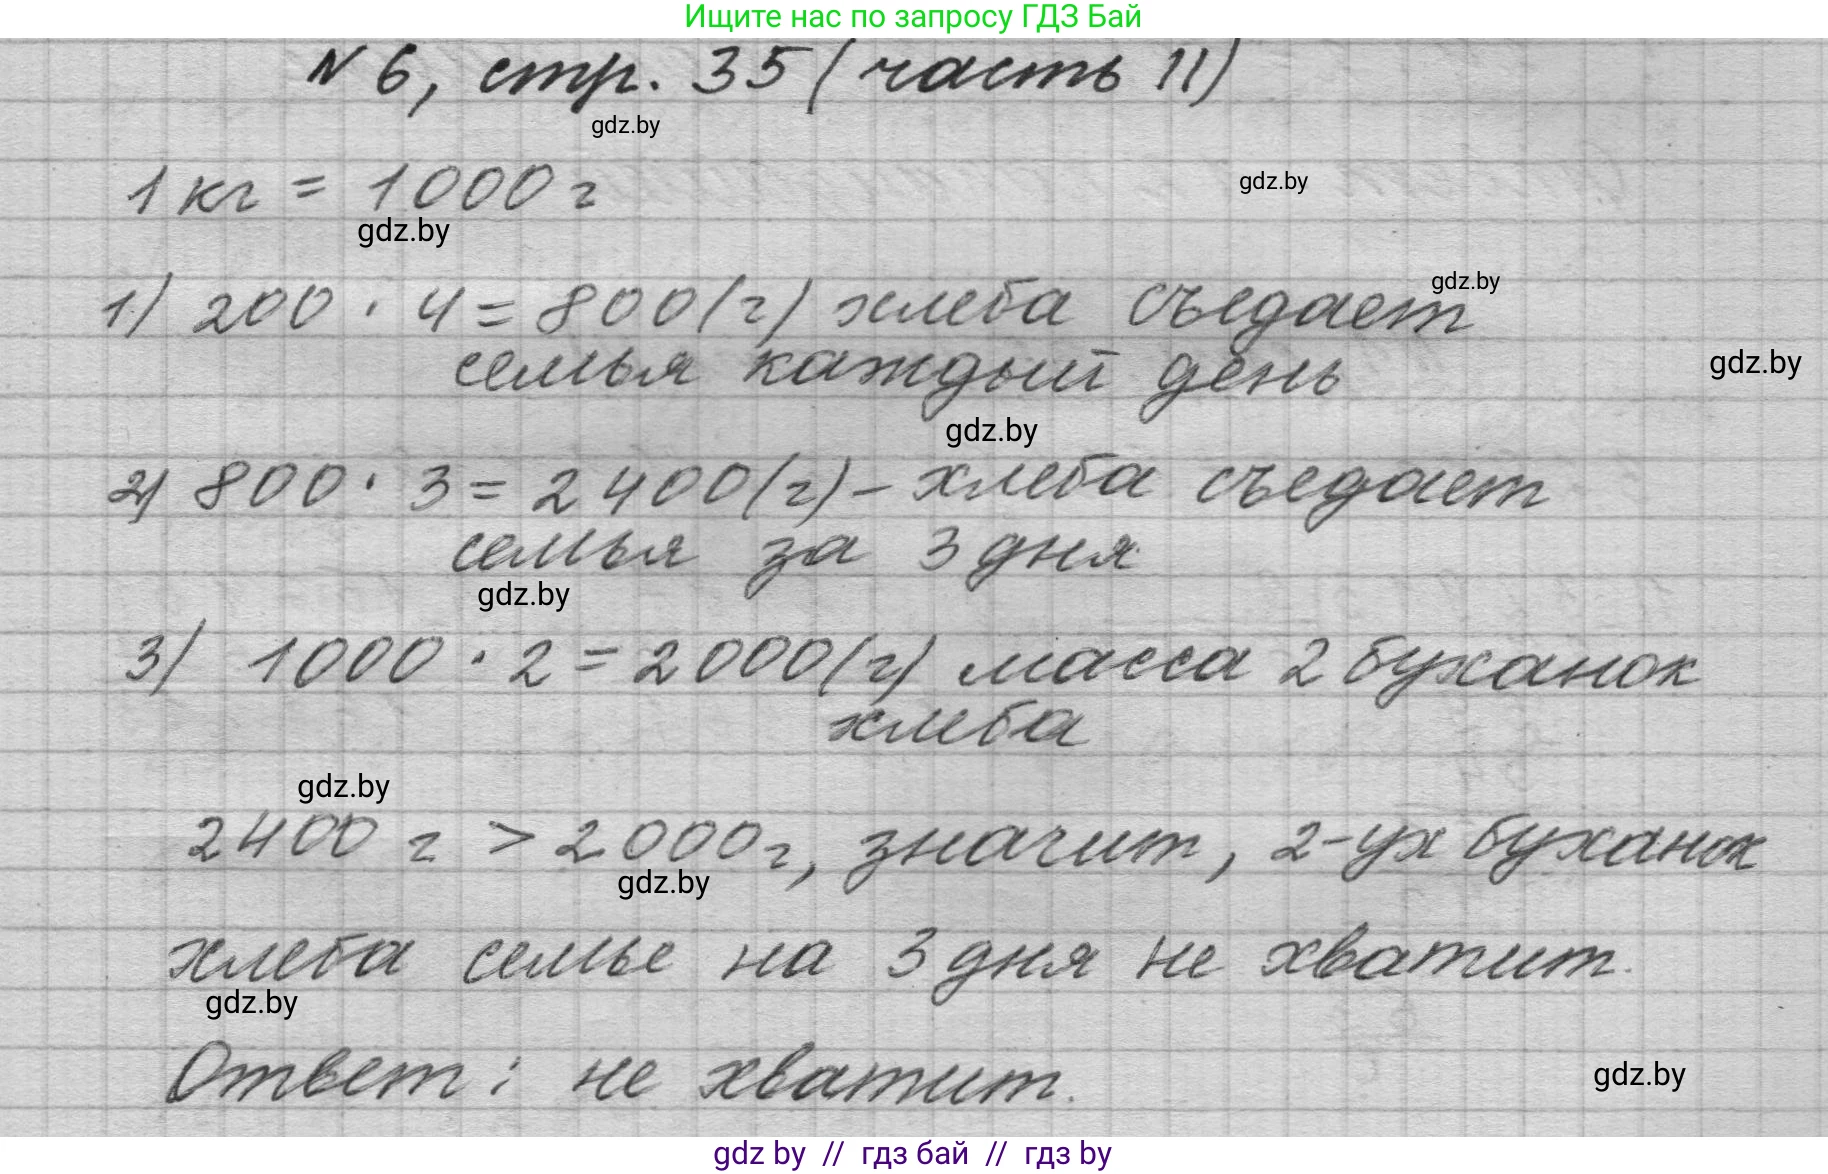 Ищите нас по запросу ГДЗ Бай
N 6, стр. 35 (часть II)
gdz.by
1 кг = 1000 г
gdz.by
gdz.by
1) 200 · 4 = 800 (г) хлеба съедает
gdz.by
семья каждый день
gdz.by
gdz.by
2) 800 · 3 = 2400 (г) – хлеба съедает
семья за 3 дня
gdz.by
3) 1000 · 2 = 2000 (г) масса 2 буханок
хлеба
gdz.by
2400 г > 2000 г, значит, 2-ух буханок
gdz.by
хлеба семье на 3 дня не хватит.
gdz.by
Ответ: не хватит.
gdz.by
gdz by // гдз бай // гдз by